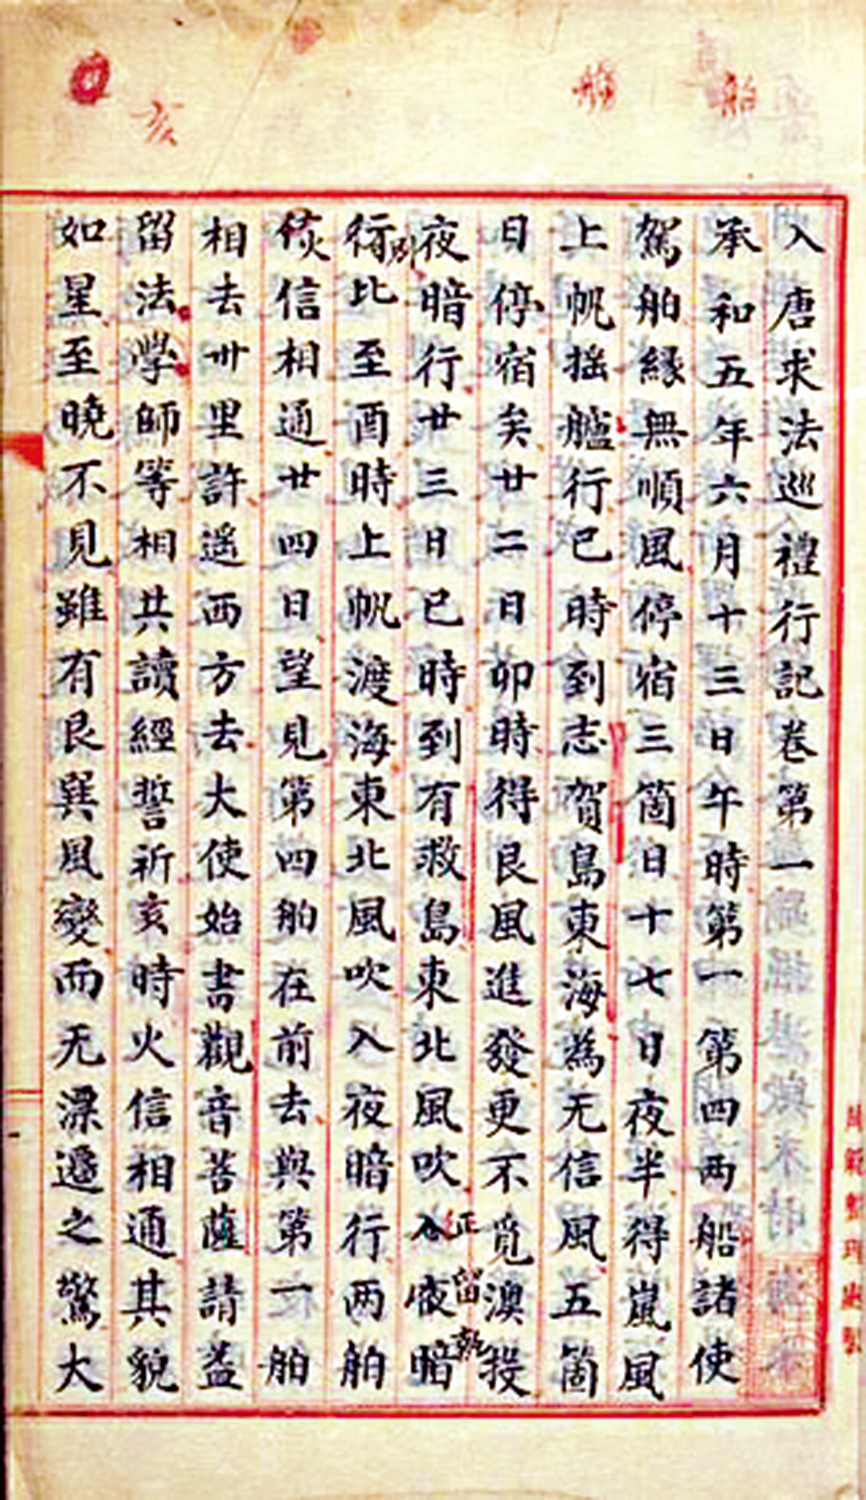 舶
亥
入唐求法巡禮行記卷第一
承和五年六月十三日午時第一第四两船諸使
駕舶緣無順風停宿三箇日十七日夜半得嵐風
上帆揺艫行巳時到志賀島東海為无信風五箇
日停宿矣廿二日卯時得艮風進發更不覓澳投
夜暗行廿三日巳時到有救島東北風吹入夜暗
行比至酉時上帆渡海東北風吹入夜暗行两舶
信相通廿四日望見第四舶在前去與第一舶
相去卅里許遥西方去大使始書觀音菩薩請益
留法學師等相共讀經誓祈亥時火信相通其貌
如星至曉不見雖有艮巽風變而无漂遷之驚大